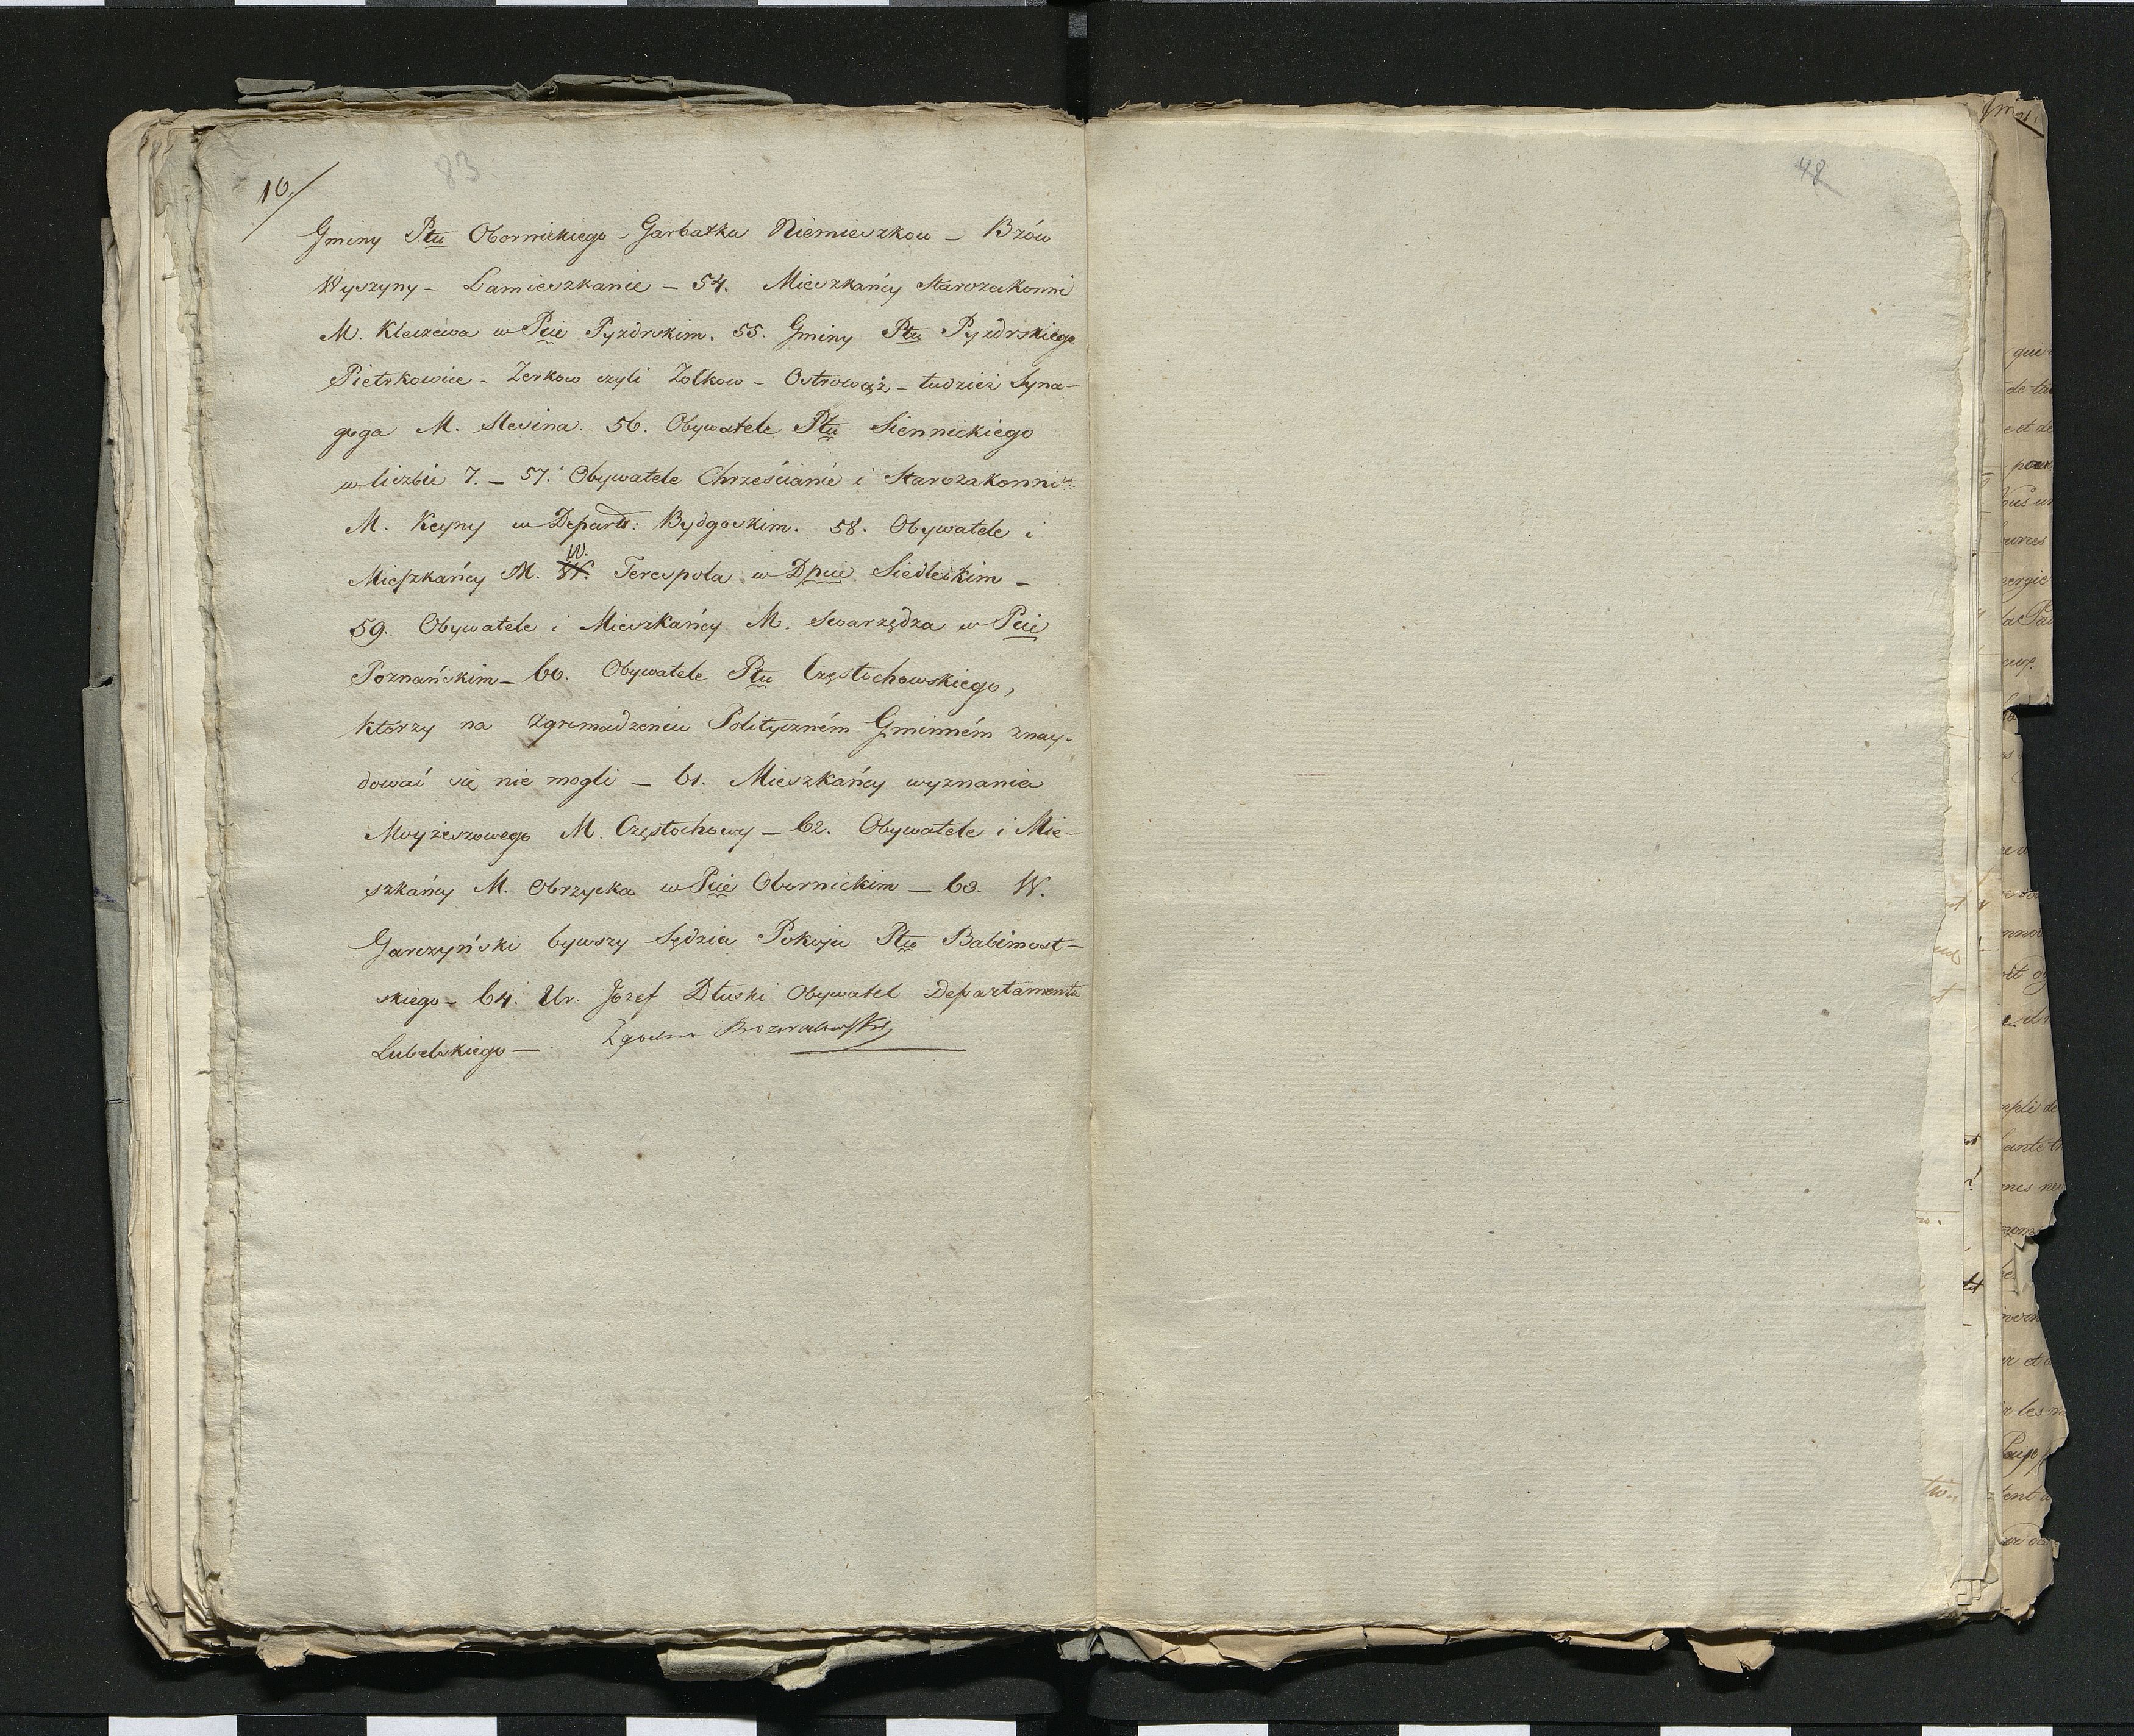 83.
10./
Gminy Ptu Obornickiego - Garbatka Niemieczkow - Bzów
Wyszyny - Lamieszkanie - 54. Mieszkańcy Starozakonni
M. Kleczewa w Pcie Pyzdrskim. 55. Gminy Ptu Pyzdrskiego
Pietrkowice - Zerkow czyli Zolkow - Ostrowąż - tudzież Syna-
goga M. Slesina. 56. Obywatele Ptu Siennickiego
w liczbie 7. - 57. Obywatele Chrześcianie i Starozakonni
M. Keyny w Depart: Bydgoskim. 58. Obywatele i
Mieszkańcy M. W. Terespola w Dpcie Siedleckim -
59. Obywatele i Mieszkańcy M. Swarzędza w Pcie
Poznańskim - 60. Obywatele Ptu Częstochowskiego,
którzy na zgromadzeniu Polityczném Gminném znay-
dować się nie mogli - 61. Mieszkańcy wyznania
Moyżeszowego M. Częstochowy - 62. Obywatele i Mie-
szkańcy M. Obrzycka w Pcie Obornickim - 63. W.
Garczyński bywszy Sędzia Pokoju Ptu Babimost-
skiego - 64. Ur. Jozef Dłuski Obywatel Departamentu
Lubelskiego -
48